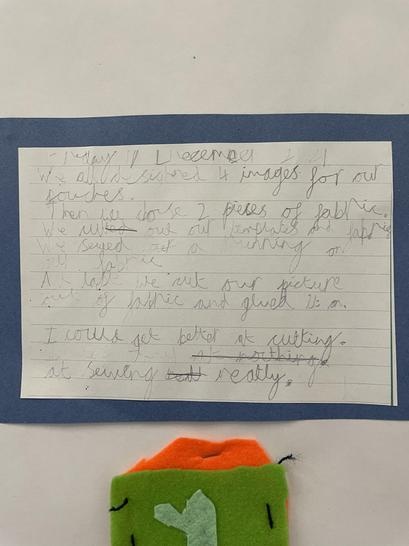 We all designed 4 images for our
pouches.
Then we chose 2 pieces of fabric.
We cut out our templates and fabric
We sewed a running on
fabric
we cut our picture
out of fabric and glued it on.
I could get better at cutting.
at nothing.
at sewing really.